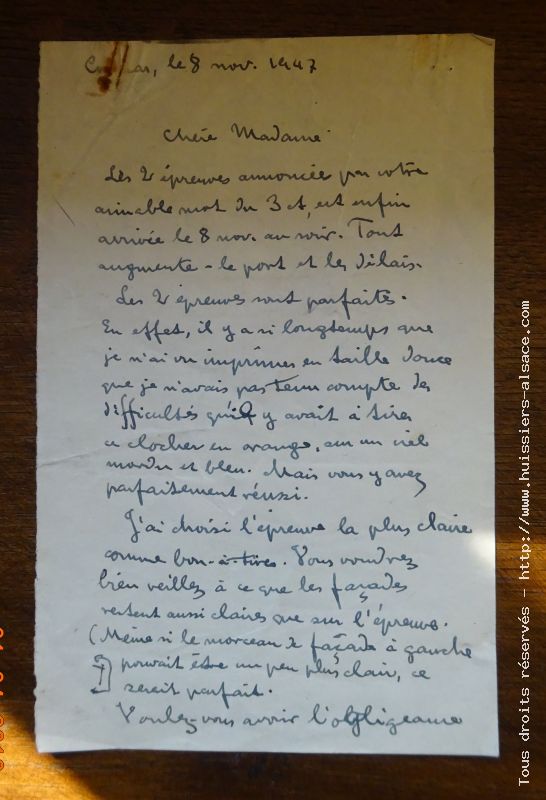 Colmar, le 8 nov. 1947
Chère Madame
Les 2 épreuves annoncée par votre
aimable mot du 3 ct, est enfin
arrivée le 8 nov. au soir. Tout
augmente - le port et les délais.
Les 2 épreuves sont parfaites.
En effet, il y a si longtemps que
je n'ai vu imprimes en taille douce
que je n'avais pas tenu compte des
difficultés qu'il y avait à tirer
ce clocher en orange, sur un ciel
mordu et bleu. Mais vous y avez
parfaitement réussi.
J'ai choisi l'épreuve la plus claire
comme bon-à-tirer. Vous voudrez
bien veillez à ce que les façades
restent aussi claires que sur l'épreuve.
(Même si le morceau de façade à gauche
pouvait être un peu plus clair, ce
serait parfait.
Voulez-vous avoir l'obligeance
Tous droits réservés - http://www.huissiers-alsace.com